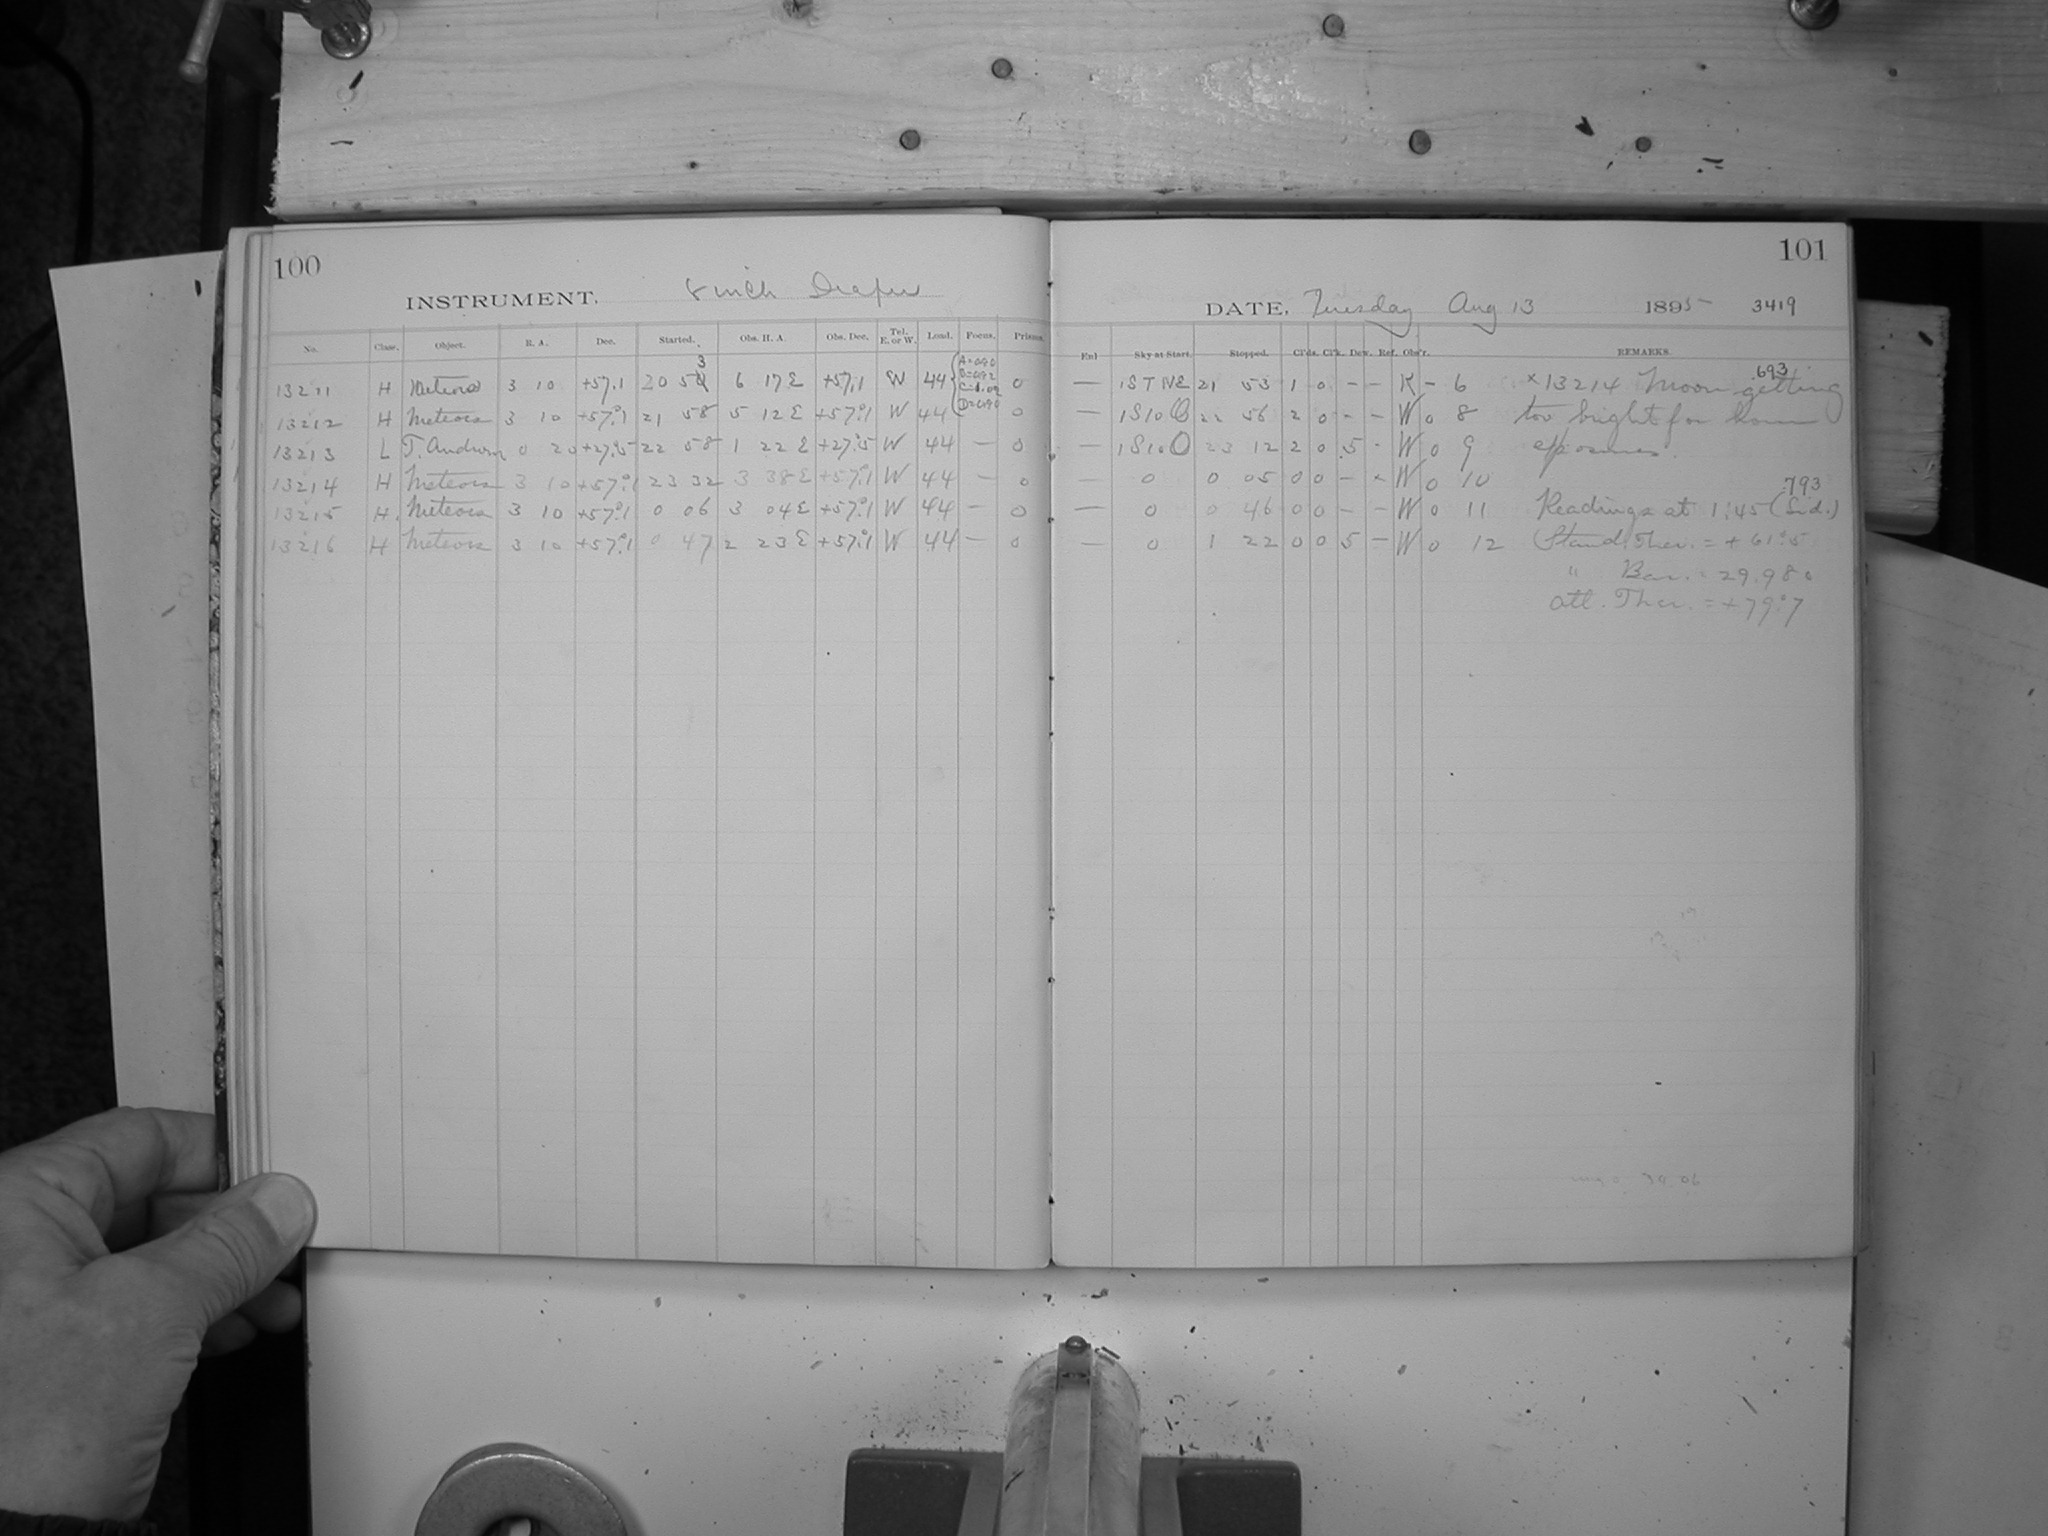 100
INSTRUMENT. 8 inch Draper
No. Class. Object. R. A. Dec. Started. Obs. H. A. Obs. Dec. Tel. E. or W. Load. Focus. Prisms.
13211 H Meteors 3 10 +57.1 20 53 6 17 E +57.1 W 44 0
13212 H Meteors 3 10 +57°.1 21 58 5 12 E +57°.1 W 44 0
13213 L T. Androm 0 20 +27°.5 22 58 1 22 E +27°.5 W 44 — 0
13214 H Meteors 3 10 +57°.1 23 32 3 38 E +57°.1 W 44 — 0
13215 H. Meteors 3 10 +57°.1 0 06 3 04 E +57°.1 W 44 — 0
13216 H Meteors 3 10 +57°.1 0 47 2 23 E +57°.1 W 44 — 0
101
DATE, Tuesday Aug 13 1895 3419
Enl Sky at Start. Stopped. Cl'ds. Cl'k. Dew. Ref. Obs'r. REMARKS.
693
— 1 S T NE 21 53 1 0 – – K – 6 × 13214 Moon getting
— 1 S 10 22 56 2 0 – – W 0 8 too bright for hour
— 1 S 10 23 12 2 0 5 - W 0 9 exposures.
— 0 0 05 0 0 – – W 0 10
793
— 0 0 46 0 0 – – W 0 11 Readings at 1:45 (Sid.)
— 0 1 22 0 0 5 – W 0 12 Stand. Ther. = + 61°.5
" Bar. = 29.980
Att. Ther. = + 79°.7